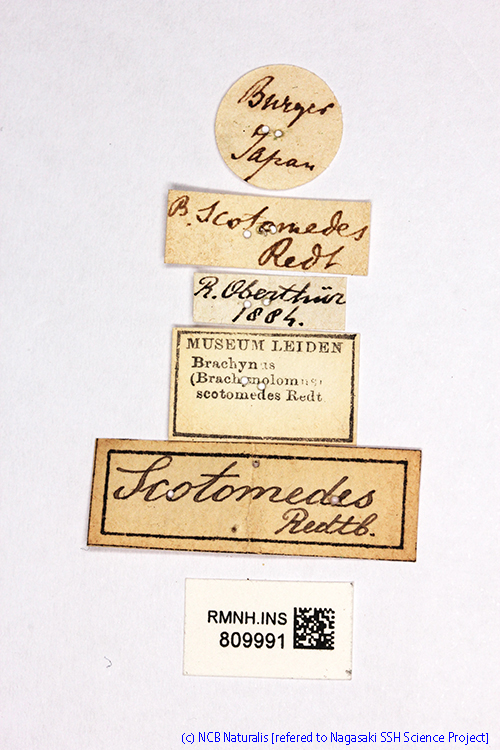 Burger
Japan
B. Scotomedes
Redt
R. Oberthür
1884.
MUSEUM LEIDEN
Brachynus
scotomedes Redt
Scotomedes
Redtb.
RMNH.INS
809991
(c) NCB Naturalis [refered to Nagasaki SSH Science Project]